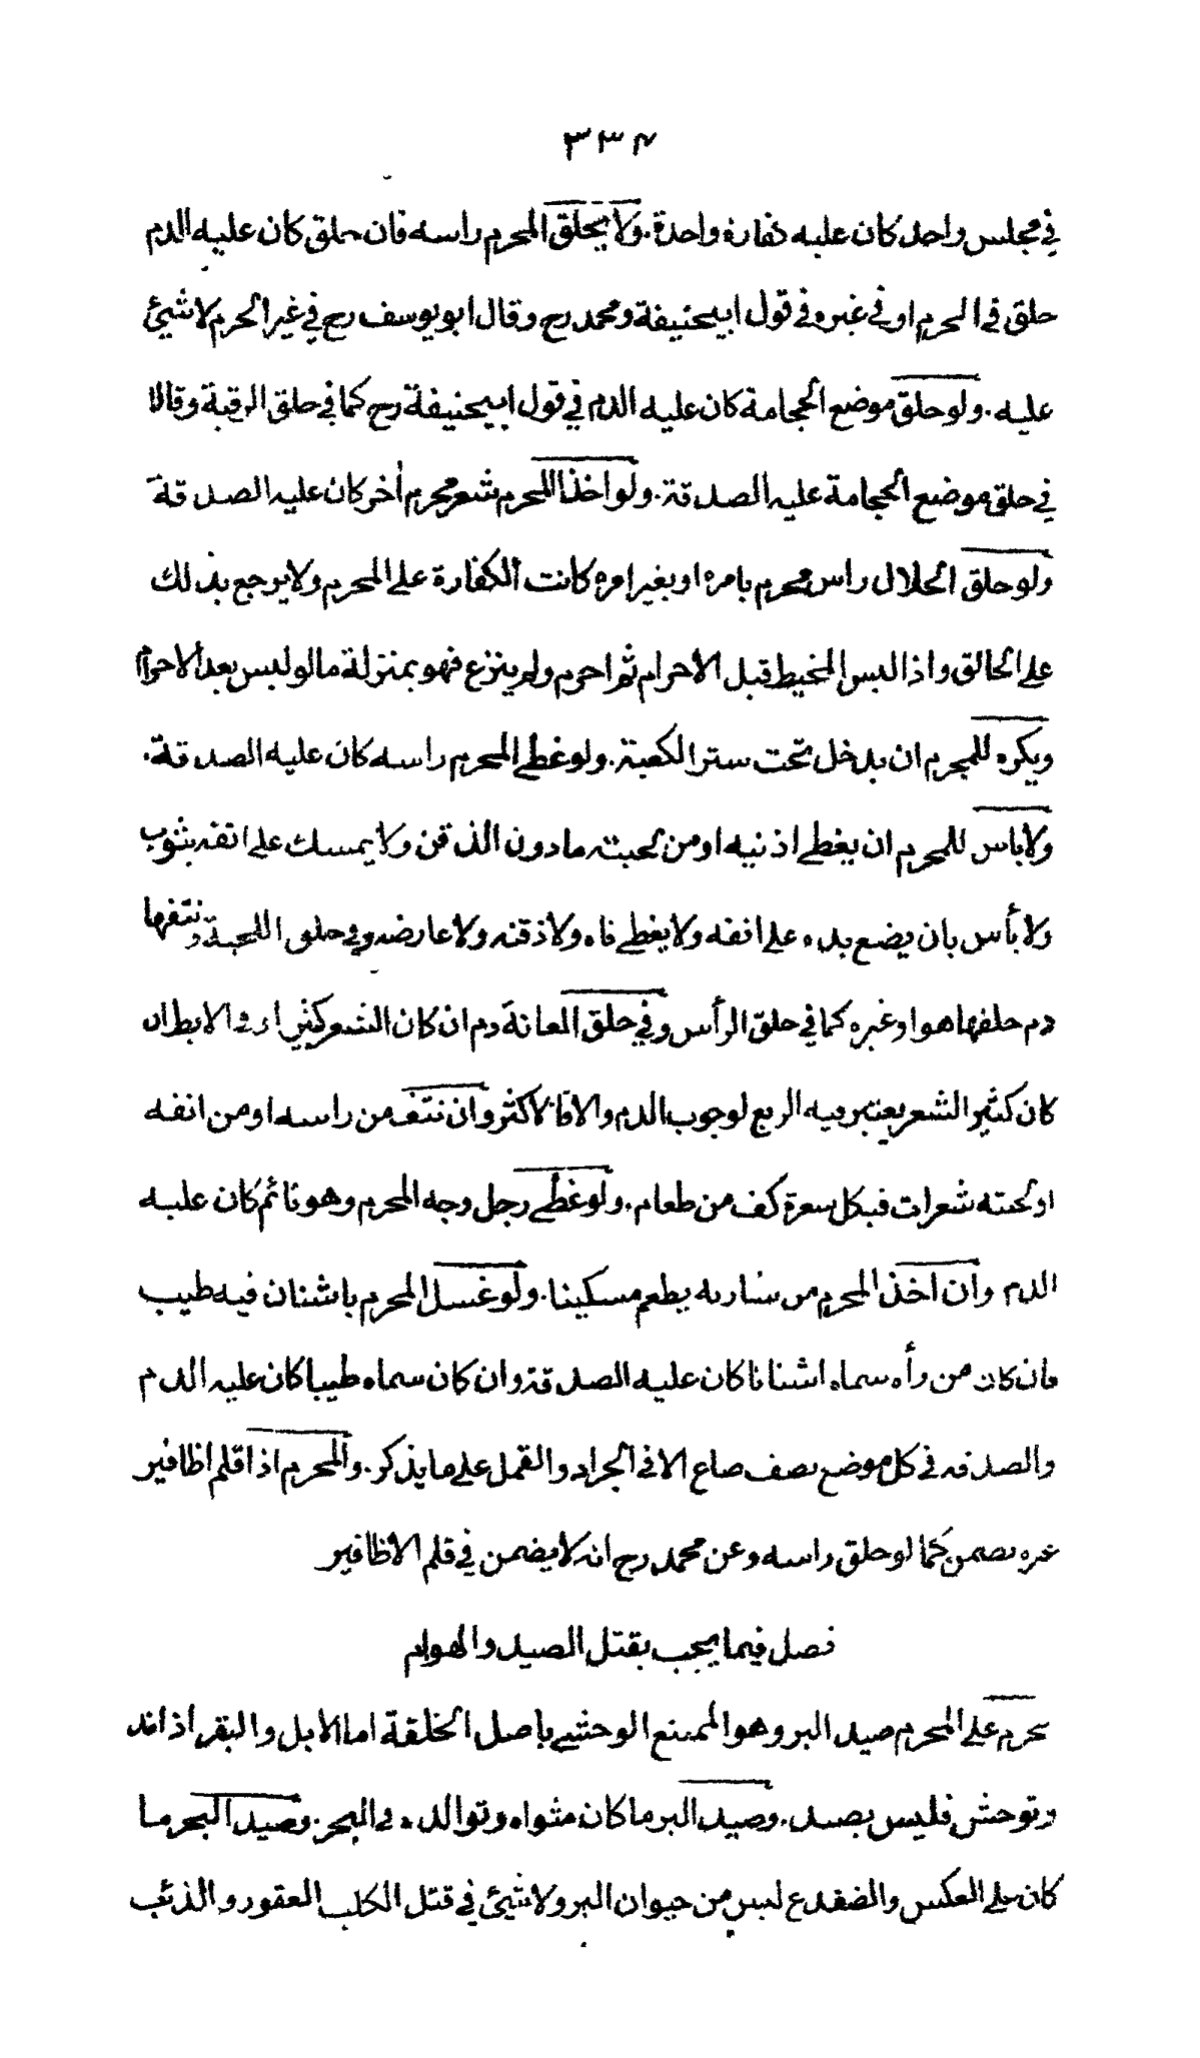 ٣٣٤
في مجلس واحد كان عليه كفارة واحدة. ولا يحلق المحرم راسه فان حلق كان عليه الدم
حلق في الحرم او في غيره في قول ابيحنيفة ومحمد رح وقال ابو يوسف رح في غير الحرم لا شيئ
عليه. ولو حلق موضع الحجامة كان عليه الدم في قول ابيحنيفة رح كما في حلق الرقبة وقالا
في حلق موضع الحجامة عليه الصدقة. ولو اخذ المحرم شعر محرم أخر كان عليه الصدقة
ولو حلق الحلال راس محرم بامره او بغير امره كانت الكفارة على المحرم ولا يرجع بذلك
على الحالق واذا لبس المخيط قبل الاحرام ثم احرم ولم ينزع فهو بمنزلة ما لو لبس بعد الاحرام
ويكره للمحرم ان يدخل تحت ستر الكعبة. ولو غطى المحرم راسه كان عليه الصدقة.
ولا باس للمحرم ان يغطى اذنيه او من لحيته ما دون الذقن ولا يمسك على انفه بثوب
ولا بأس بان يضع يده على انفه ولا يغطى فاه ولا ذقنه ولا عارضه وفي حلق اللحية ونتفها
دم حلقها هو او غيره كما في حلق الرأس وفي حلق العانة دم ان كان الشعر كثيرا وفي الابط ان
كان كثير الشعر يعتبر فيه الربع لوجوب الدم والا فالاكثر وان نتف من راسه او من انفه
او لحيته شعرات فبكل شعرة كف من طعام. ولو غطى رجل وجه المحرم وهو نائم كان عليه
الدم وان اخذ المحرم من شاربه يطعم مسكينا. ولو غسل المحرم باشنان فيه طيب
فان كان من رأه سماه اشنانا كان عليه الصدقة وان كان سماه طيبا كان عليه الدم
والصدقة في كل موضع نصف صاع الا في الجراد والقمل على ما يذكر. والمحرم اذا قلم اظافير
غيره يضمن كما لو حلق راسه وعن محمد رح انه لا يضمن في قلم الاظافير
فصل فيما يجب بقتل الصيد والهوام
يحرم على المحرم صيد البر وهو الممتنع الوحشي باصل الخلقة اما الابل والبقر اذا ند
وتوحش فليس بصيد. وصيد البر ما كان مثواه وتوالده في البحر. وصيد البحر ما
كان على العكس والضفدع ليس من حيوان البر ولا شيئ في قتل الكلب العقور والذئب